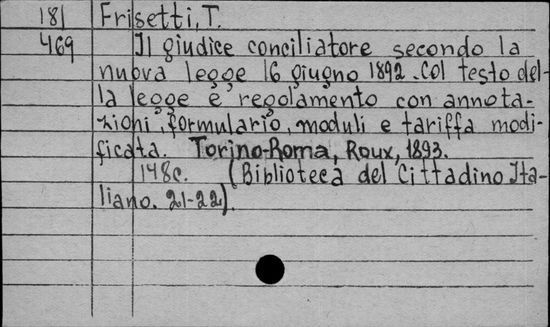 181 Frisetti, T.
469 Il giudice conciliatore secondo la
nuova legge 16 giugno 1892. Col testo del-
la legge e regolamento con annota-
zioni, formulario, moduli e tariffa modi-
ficata. Torino-Roma, Roux, 1893.
148c. (Biblioteca del Cittadino Ita-
liano. 21-22).